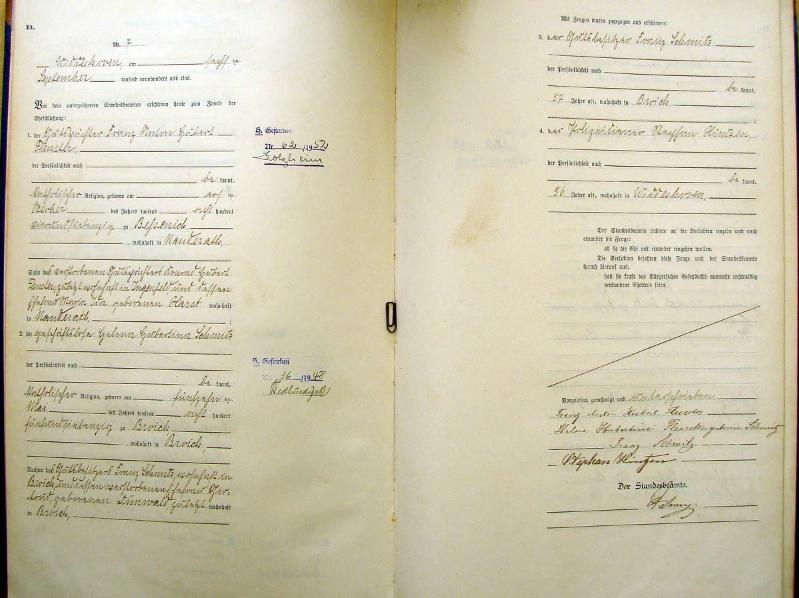 B.
Nr. 7
Widdeshoven, am
September tausend neunhundert und eins.
Vor dem unterzeichneten Standesbeamten erschienen heute zum Zwecke der
Eheschließung:
1. der Gutspächter Franz Anton Hubert
der Persönlichkeit nach
be kannt,
katholischer Religion, geboren am
des Jahres tausend acht hundert
vierundsiebenzig zu Bessenich,
, wohnhaft in Manderath,
Sohn des verstorbenen Gutspächters Konrad Hubert
zuletzt wohnhaft in und dessen
Ehefrau Maria geborenen Harst wohnhaft
in Manderath.
2. die geschäftslose Helena Hubertina Schmitz
der Persönlichkeit nach
be kannt,
katholischer Religion, geboren am fünfzehn ten
Mai des Jahres tausend acht hundert
fünfundsiebenzig zu Broich
, wohnhaft in Broich,
Tochter des Gutsbesitzers Franz Schmitz, wohnhaft in
Broich und dessen verstorbenen Ehefrau Ger-
trud, geborenen Dünwald, zuletzt wohnhaft
in Broich,
H. Gestorben
Nr. 62 /1952
H. Gestorben
Nr. 36 /1948
Als Zeugen waren zugezogen und erschienen:
3. der Gutsbesitzer Franz Schmitz
der Persönlichkeit nach
be kannt,
57 Jahre alt, wohnhaft in Broich
4. der Polizeidiener Steffen Hintzen
der Persönlichkeit nach
be kannt,
36 Jahre alt, wohnhaft in Widdeshoven,
Der Standesbeamte richtete an die Verlobten einzeln und nach
einander die Frage:
ob sie die Ehe mit einander eingehen wollen.
Die Verlobten bejahten diese Frage und der Standesbeamte
sprach hierauf aus,
daß sie kraft des Bürgerlichen Gesetzbuchs nunmehr rechtmäßig
verbundene Eheleute seien.
Vorgelesen, genehmigt und unterschrieben
Franz Anton Hubert
Helene Hubertine geborene Schmitz
Franz Schmitz
Stephan Hintzen
Der Standesbeamte.